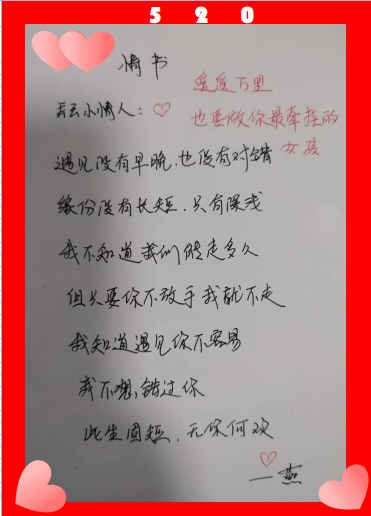 520
情书
遥遥万里
也要做你最牵挂的
女孩
小情人：
遇见没有早晚，也没有对错
缘份没有长短，只有深浅
我不知道我们能走多久
但只要你不放手我就不走
我知道遇见你不容易
我不想错过你
此生固短，无你何欢
一燕